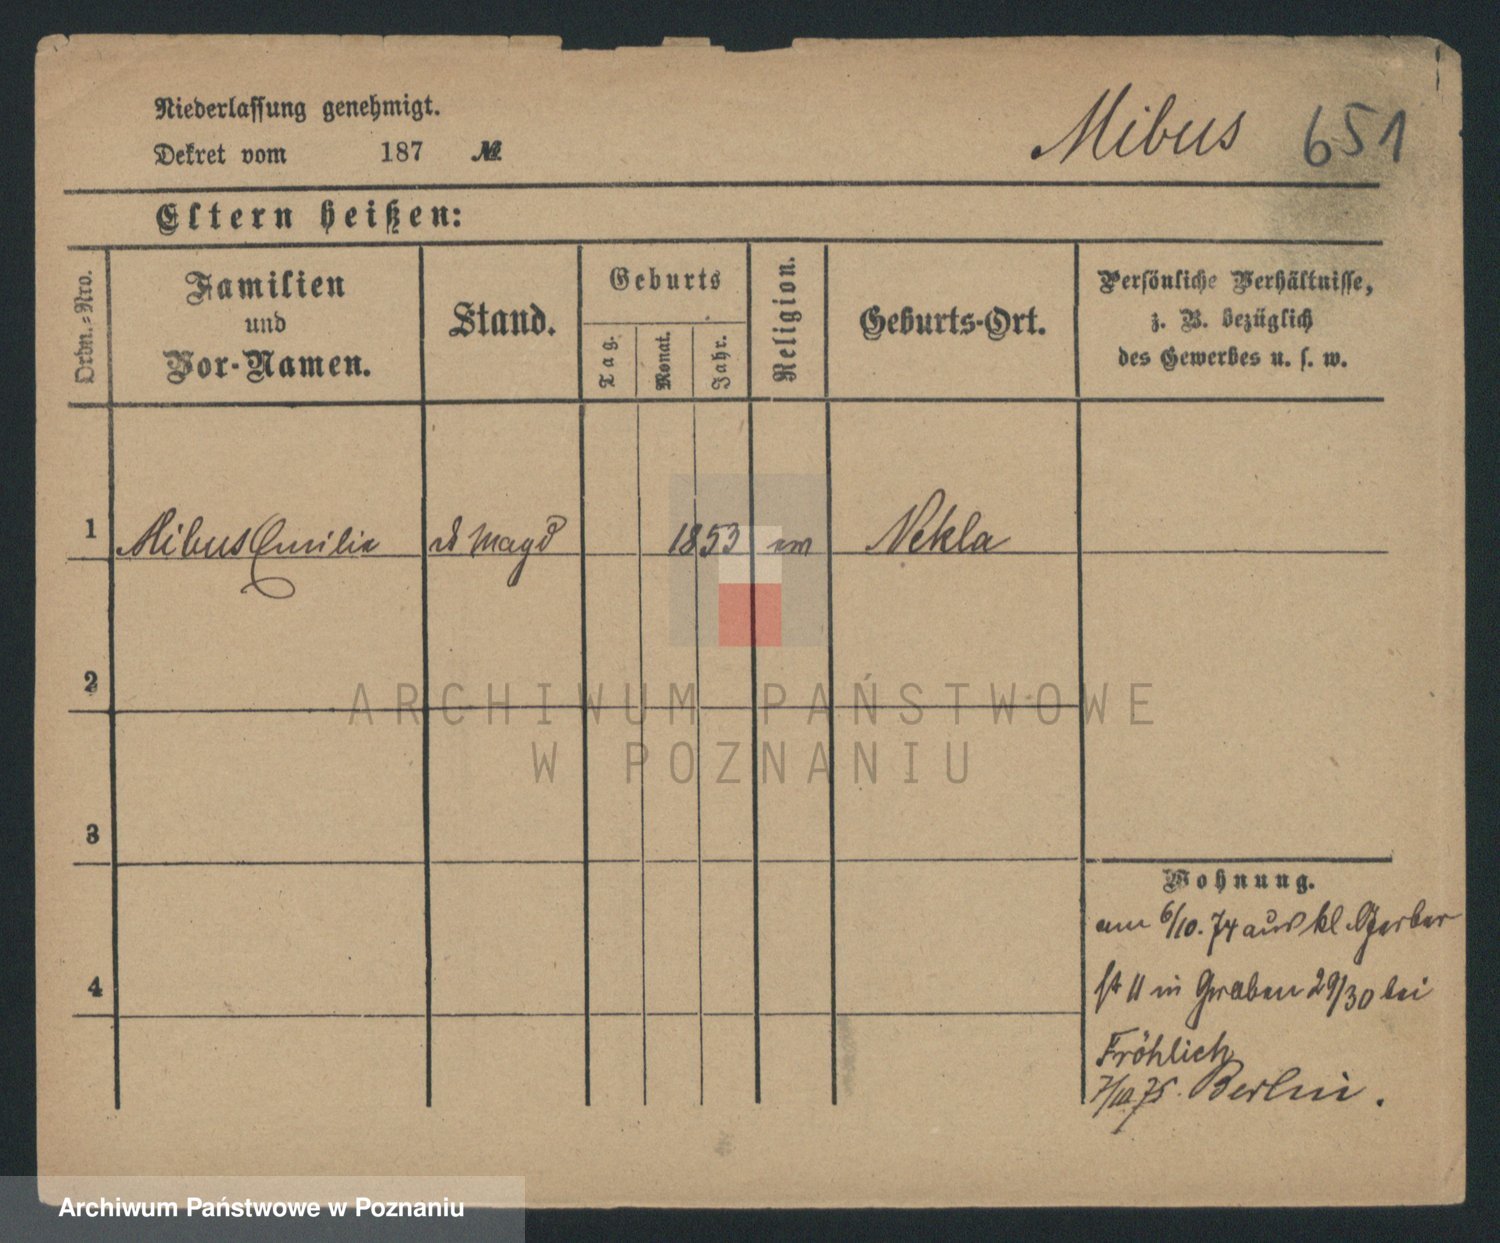 Niederlassung genehmigt.
Dekret vom 187 №
Mibus 651
Eltern heißen:
Ordn.-Nro.
Familien
und
Vor-Namen.
Stand.
Geburts
Tag.
Monat.
Jahr.
Religion.
Geburts-Ort.
Persönliche Verhältnisse,
z. B. bezüglich
des Gewerbes u. s. w.
1 Mibus Emilie Magd 1853 Nekla
2
3
4
Wohnung.
am 6/10. 74 aus kl. Gerber
st 11 in Graben 29/30 bei
Fröhlich
75. Berlin.
ARCHIWUM PAŃSTWOWE
W POZNANIU
Archiwum Państwowe w Poznaniu